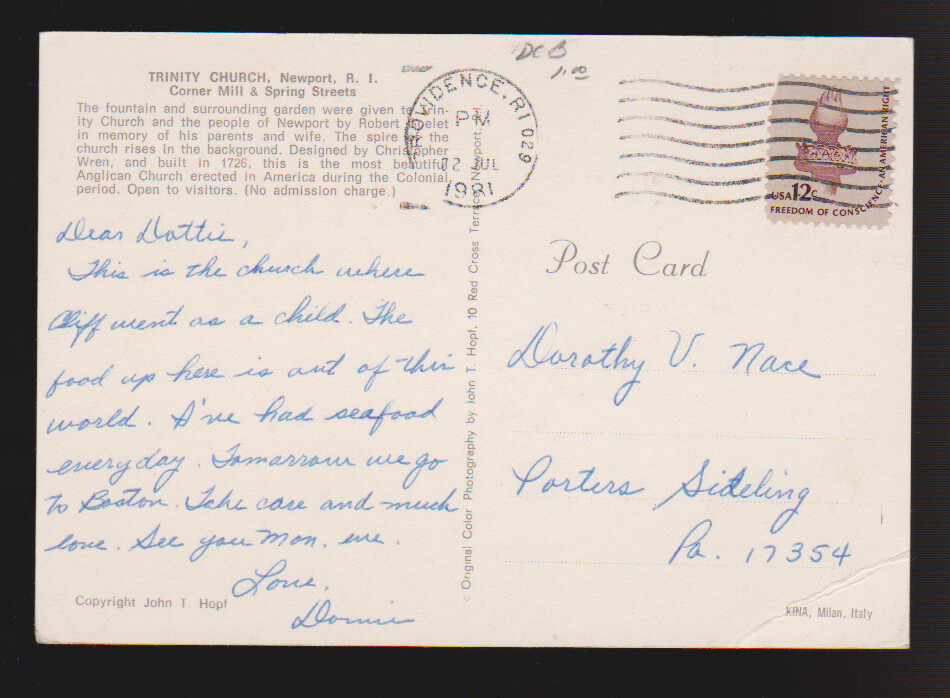 DCB
1.00
TRINITY CHURCH, Newport, R. I.
Corner Mill & Spring Streets
The fountain and surrounding garden were given to Trin-
ity Church and the people of Newport by Robert Goelet
in memory of his parents and wife. The spire of the
church rises in the background. Designed by Christopher
Wren, and built in 1726, this is the most beautiful
Anglican Church erected in America during the Colonial
period. Open to visitors. (No admission charge.)
PROVIDENCE, RI 029
PM
22 JUL
1981
USA 12c
FREEDOM OF CONSCIENCE-AN AMERICAN RIGHT
Dear Dottie,
This is the church where
Cliff went as a child. The
food up here is out of this
world. I've had seafood
everyday. Tomorrow we go
to Boston. Take care and much
love. See you Mon. eve.
Love,
Copyright John T. Hopf
© Original Color Photography by John T. Hopf, 10 Red Cross Terrace, Newport, R.I.
Post Card
Dorothy V. Nace
Porters Sideling
Pa. 17354
KINA, Milan, Italy